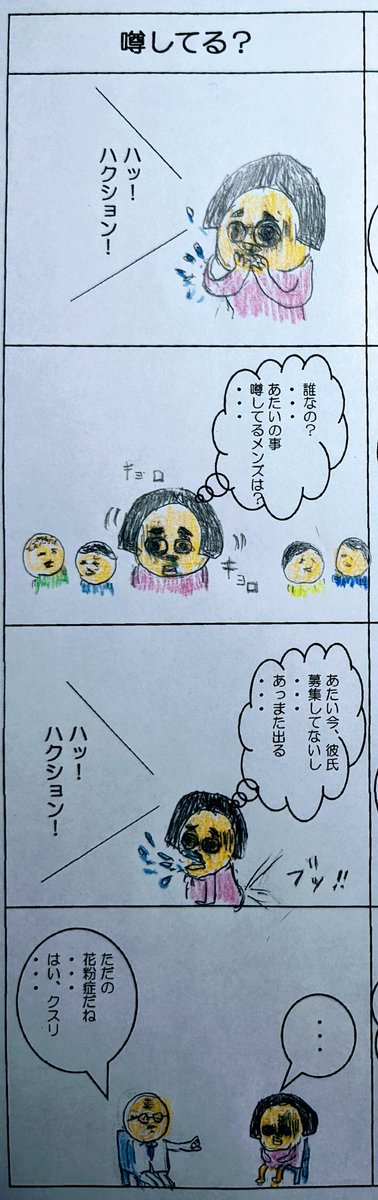 噂してる？
ハッ！
ハクション！
誰なの？
・・・
あたいの事
噂してるメンズは？
・・・
キョロ
キョロ
あたい今、彼氏
募集してないし
・・・
あっまた出る
・・・
ハッ！
ハクション！
ブッ!!
・・・
ただの
・・・
花粉症だね
・・・
はい、クスリ
・・・